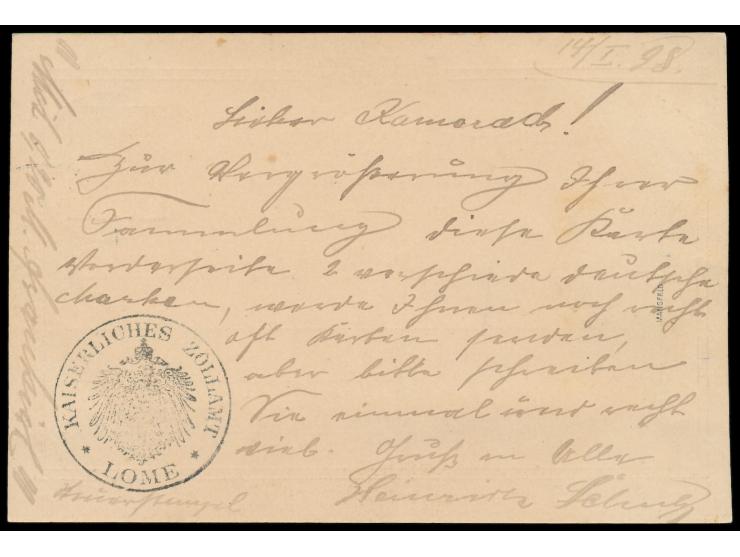 14/I. 98.
Lieber Kamerad!
Zur Vergrößerung Ihrer
Sammlung diese Karte
Vorderseite 2 verschiede deutsche
Marken, werde Ihnen noch recht
oft Karten senden,
aber bitte schreiben
Sie einmal und recht
viel. Gruß an Alle
Heinrich
KAISERLICHES ZOLLAMT
* LOME *
MANSFELD